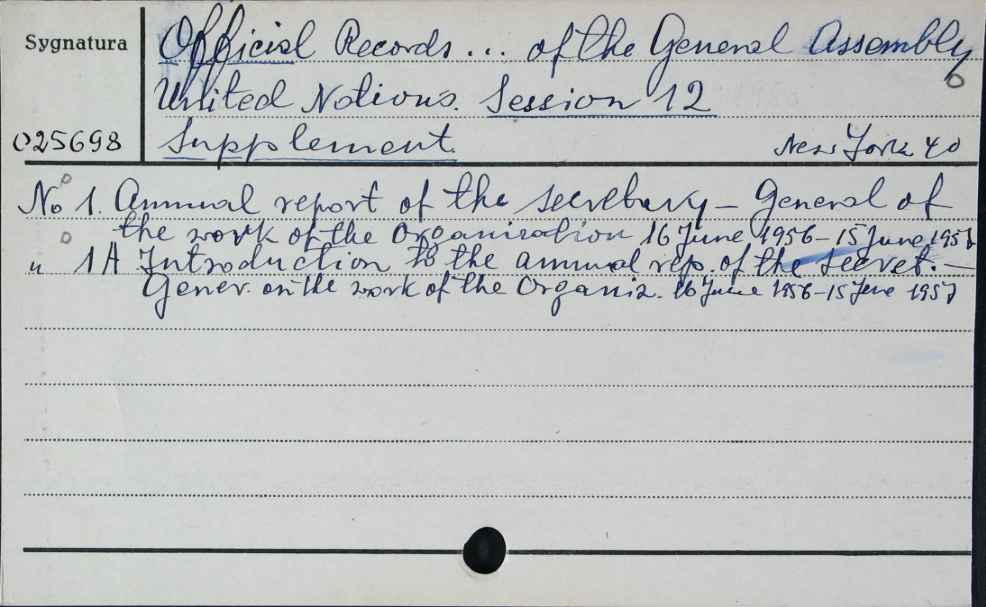 Sygnatura
Official Records ... of the General Assembly
United Nations. Session 12
025698
Supplement.
New York 40
No 1. Annual report of the secretary - General of
the work of the Organisation 16 June 1956 - 15 June 1957
" 1A Introduction to the annual rep. of the Secret. -
Gener. on the work of the Organiz. 16 June 1956 - 15 June 1957